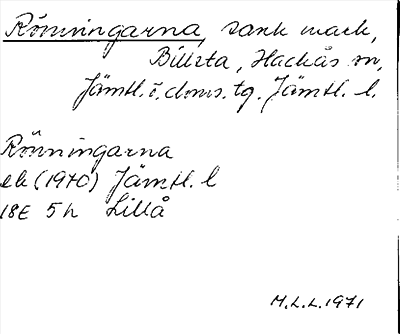 Rönningarna, sank mark,
Billsta, Hackås sn,
Jämtl. ö. doms. tg. Jämtl. l.
Rönningarna
ek (1970) Jämtl. l
18E 5h Lillå
M.L.L. 1971